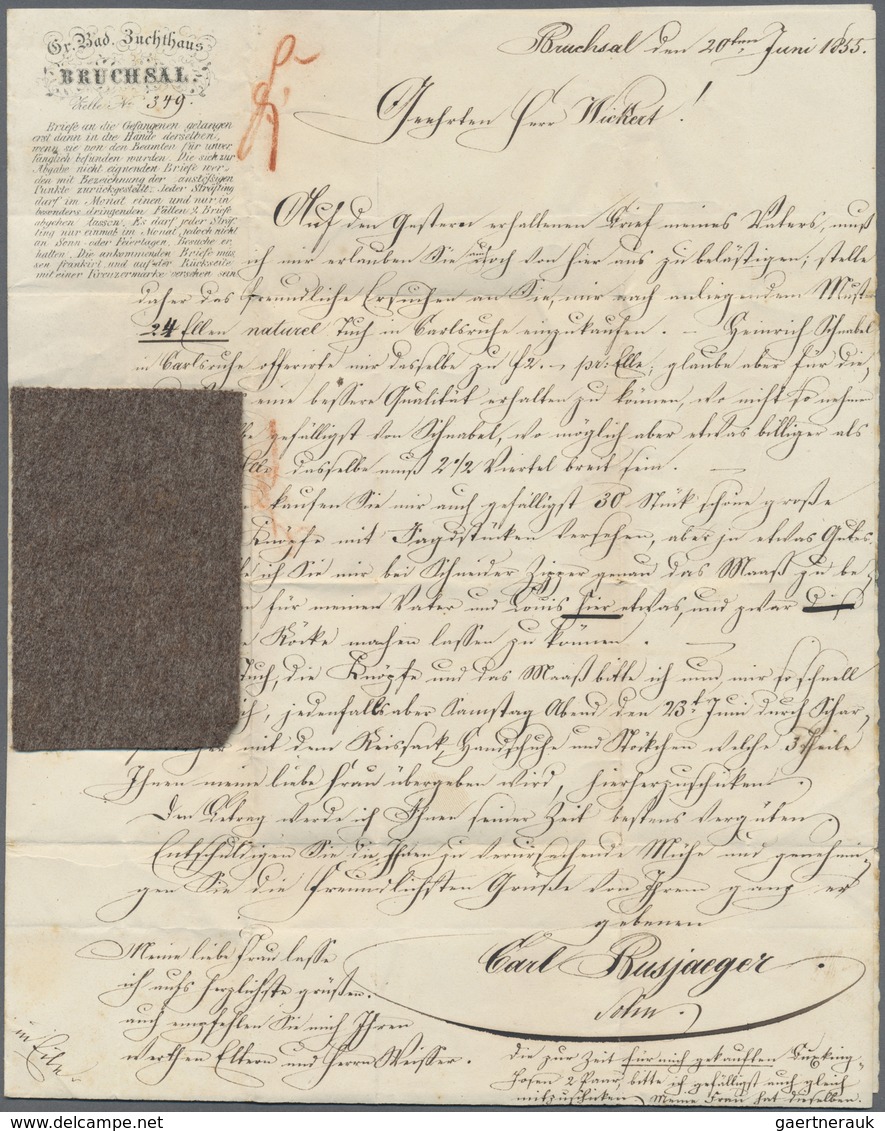 Gr. Bad. Zuchthaus
BRUCHSAL.
Zelle No 349.
Briefe an die Gefangenen gelangen
erst dann in die Hände derselben,
wenn sie von den Beamten für unver-
fänglich befunden wurden. Die sich zur
Abgabe nicht eignenden Briefe wer-
den mit Bezeichnung der anstössigen
Punkte zurückgestellt. Jeder Sträfling
darf im Monat einen und nur in
besonders dringenden Fällen 2 Briefe
abgehen lassen. Es darf jeder Sträf-
ling nur einmal im Monat, jedoch nicht
an Sonn- oder Feiertagen, Besuche er-
halten. Die ankommenden Briefe müs-
sen frankirt und auf der Rückseite
mit einer Kreuzermarke versehen sein
Bruchsal den 20ten Juni 1855.
Geehrten Herr Wickert!
Auf den Gestern erhaltenen Brief meines Vaters, muß
ich mir erlauben Sie auch noch von hier aus zu belästigen; stelle
daher das freundliche Ersuchen an Sie, mir nach anliegendem Must
24 Ellen naturel Tuch in Carlsruhe einzukaufen. – Heinrich Schnabel
in Carlsruhe offerirte mir dasselbe zu f2.– pr: Elle, glaube aber für die
eine bessere Qualität erhalten zu können, wo nicht so nehmen
gefälligst von Schnabel, wo möglich aber etwas billiger als
dasselbe muß 2 1/2 Viertel breit sein. –
kaufen Sie mir auch gefälligst 30 Stück schöne große
Knöpfe mit Jagdstücken versehen, aber ja etwas Gutes.
ich Sie mir bei Schneider Zipper genau das Maaß zu be-
für meinen Vater und Louis hier etwas, und zwar
Röcke machen lassen zu können. –
Tuch, die Knöpfe und das Maaß bitte ich nun, mir so schnell
jedenfalls aber Samstag Abend den 23t Juni durch
mit dem Reissack, Handschuhe und Stöckchen welche 3 Theile
Ihnen meine liebe Frau übergeben wird, hierherzuschicken.
Den Betrag werde ich Ihnen seiner Zeit bestens vergüten.
Entschuldigen Sie die Ihnen zu verursachende Mühe und genehmi-
gen Sie die freundlichsten Grüße von Ihrem ganz er
gebenen
Carl Rusjaeger
Sohn.
Meine liebe Frau lasse
ich aufs herzlichste grüßen.
auch empfehlen Sie mich Ihren
werthen Eltern und Herrn Weisser.
in Eile
Die zur Zeit für mich gekauften Buxking-
Hosen 2 Paar, bitte ich gefälligst auch gleich
mitzuschicken, Meine Frau hat dieselben.
gaertnerauk